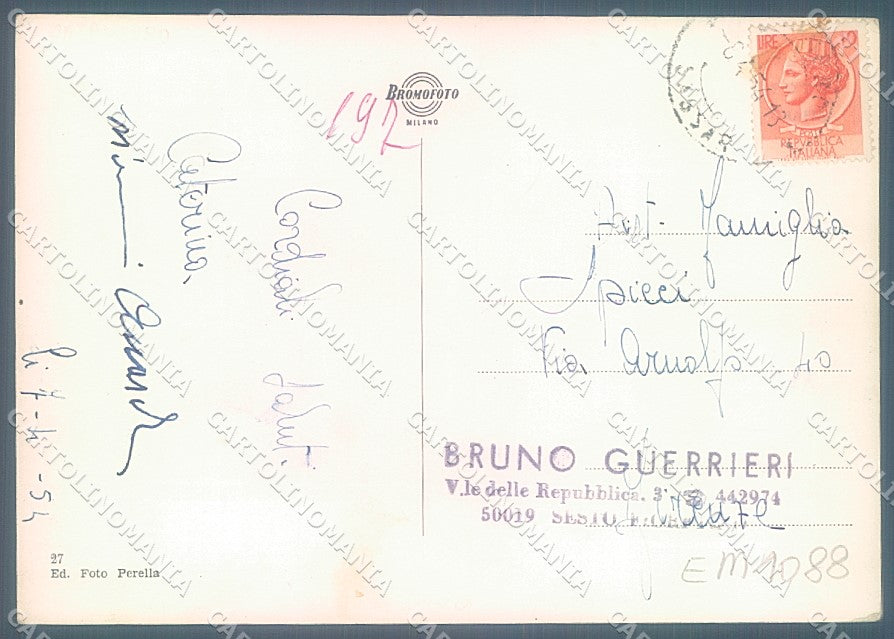 BROMOFOTO
MILANO
192
LIRE
REPUBBLICA
ITALIANA
Cordiali saluti
Caterina
li 7-4-54
Famiglia
Spicci
Via Arnolfo 40
Firenze
BRUNO GUERRIERI
V.le delle Repubblica. 3 442974
50019 SESTO
27
Ed. Foto Perella
EM1088
CARTOLINOMANIA